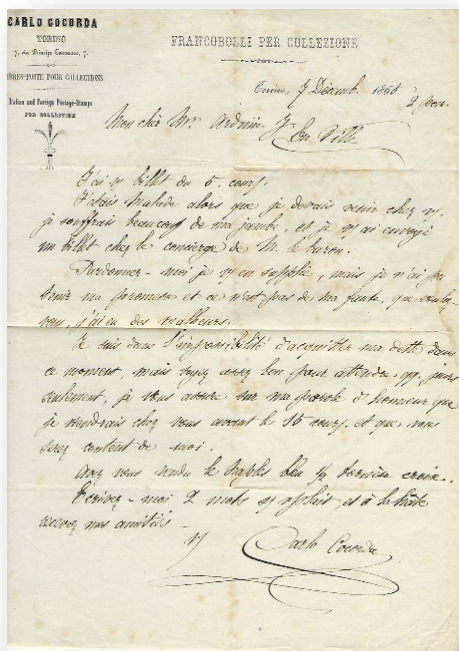 CARLO COCORDA
TORINO
7, via Principe Tommaso, 7.
TIMBRES-POSTE POUR COLLECTIONS
Italian and Foreign Postage-Stamps
FOR COLLECTION
FRANCOBOLLI PER COLLEZIONE
Turin, 7 Décemb. 1866
Mon cher Mr. Arduin Jr.
En Ville
J'ai billet du 5. cour.
J'étais malade alors que je devais venir chez
je souffrais beaucoup de ma jambe, et je ai envoyé
un billet chez le concierge de M. le baron.
Pardonnez-moi je en supplie, mais je n'ai pu
tenir ma promesse et ce n'est pas de ma faute, que voulez
vous, j'ai eu des malheurs.
Je suis dans l'impossibilité d'acquitter ma dette dans
ce moment, mais soyez assez bon pour attendre jours
seulement, je vous assure sur ma parole d'honneur que
je viendrais chez vous avant le 15 cour. et que vous
serez content de moi.
Avez vous vendu le Naples bleu ½ tornèse croix..
Écrivez-moi 2 mots et à la hâte
recevez mes amitiés
Carlo Cocorda